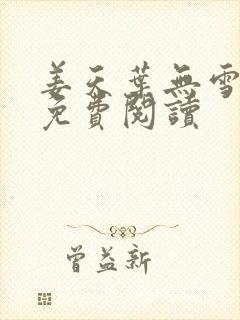 姜天葉無雪
免費閱讀
曾益新